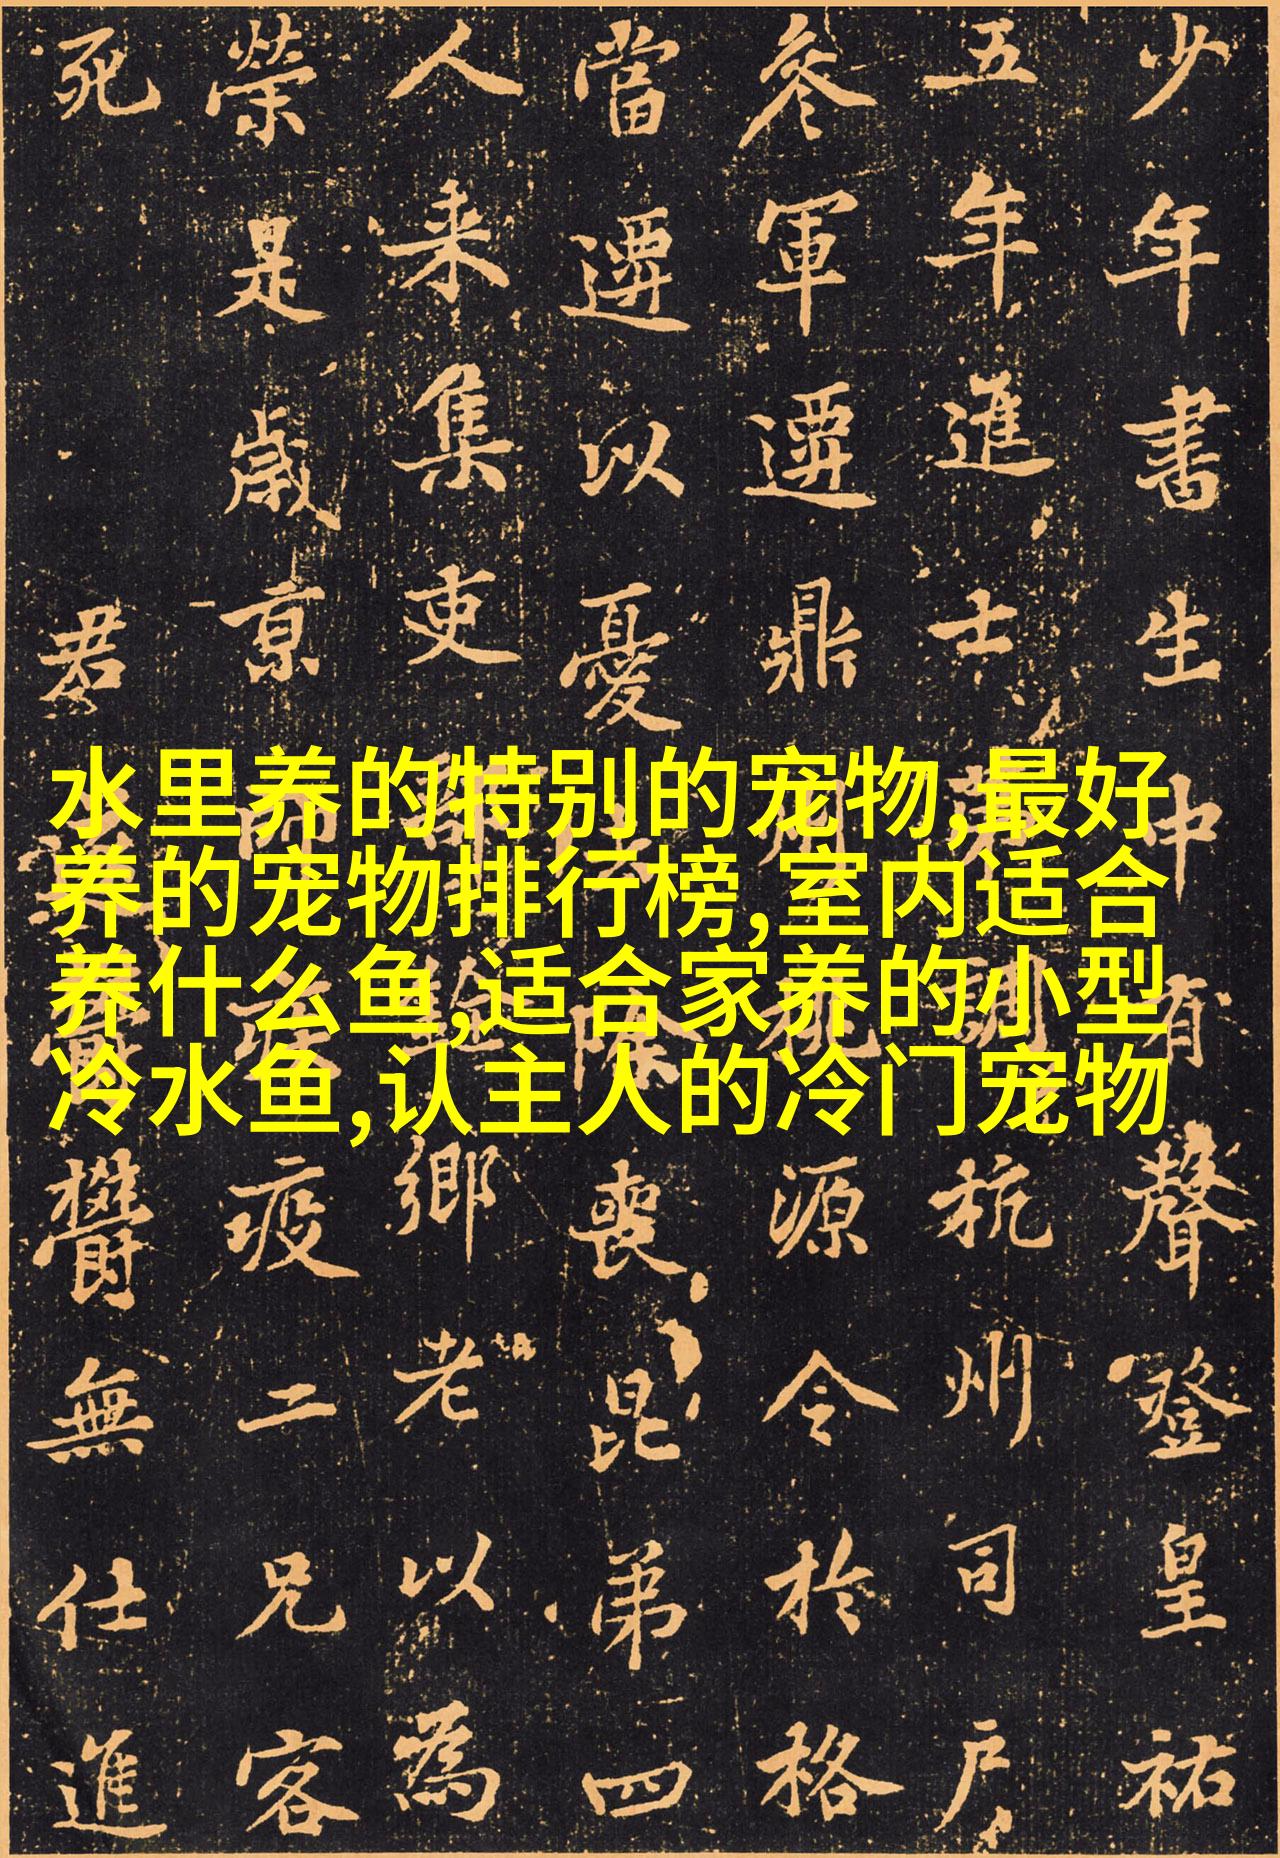 水里养的特别的宠物,最好
养的宠物排行榜,室内适合
养什么鱼,适合家养的小型
冷水鱼,认主人的冷门宠物
少年書生中有聲登皇祐
五年進士第調杭州司戶
參軍遷鼎州桃源令於格
當遷以憂去除喪昆弟四
人来集吏鄉老以為
榮是歲京疫二兄客
死君鬱無仕進